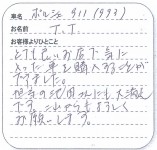 車名 ポルシェ 911 (993)
お名前 T.T
お客様よりひとこと
とても良いお店で気に
入った車を購入することが
できました。
担当の池田さんにも大満足
です。これからもよろしく
お願いします。